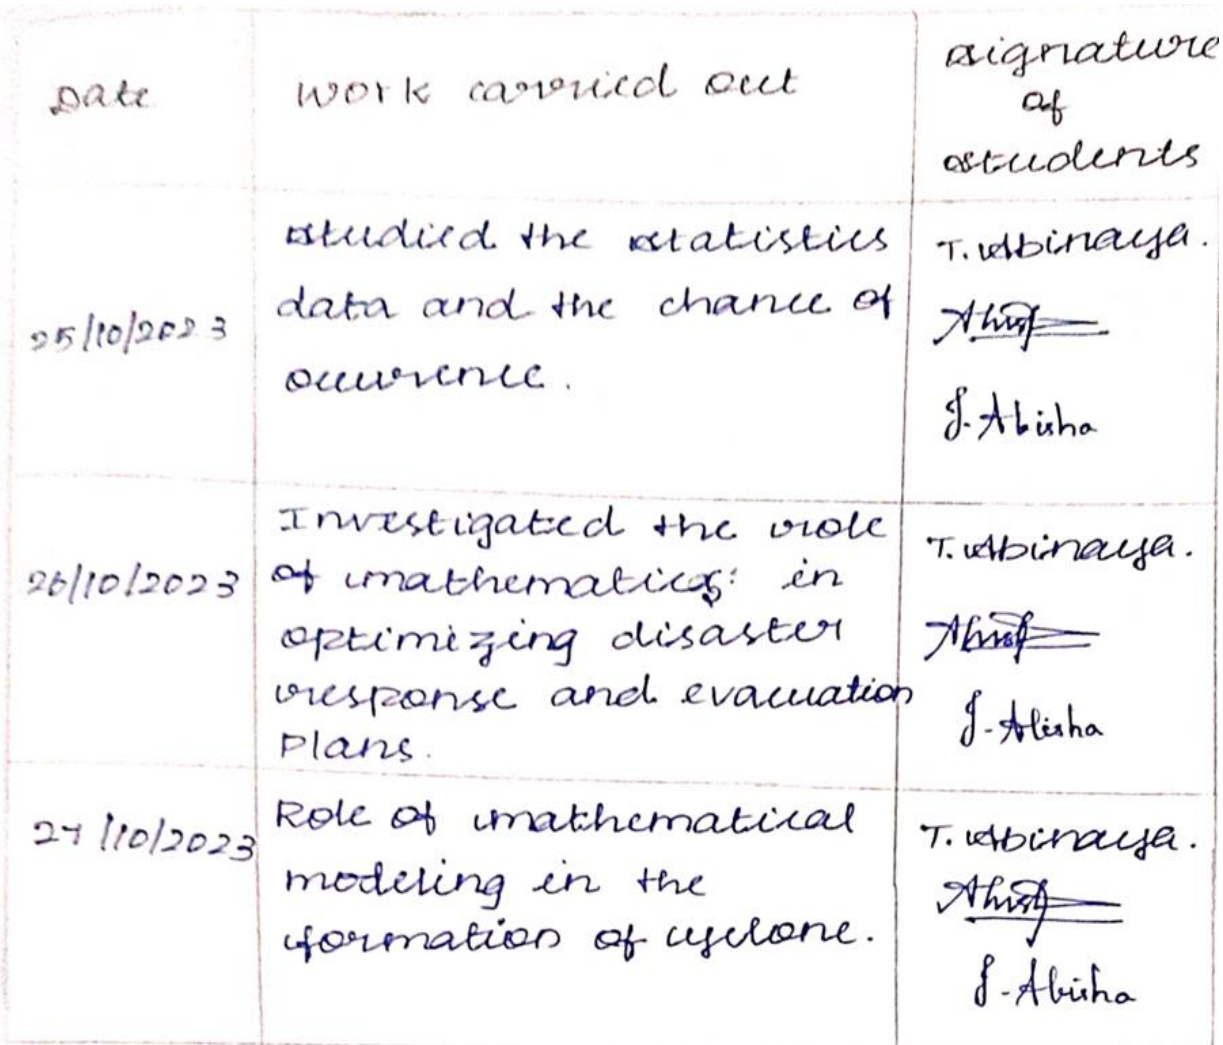 Date
work carried out
signature
of
students
25/10/2023
studied the statistics
data and the chance of
occurence.
T. Abinaya.
J. Abisha
26/10/2023
Investigated the role
of mathematics in
optimizing disaster
response and evacuation
Plans.
T. Abinaya.
J. Abisha
27/10/2023
Role of mathematical
modeling in the
formation of cyclone.
T. Abinaya.
J. Abisha